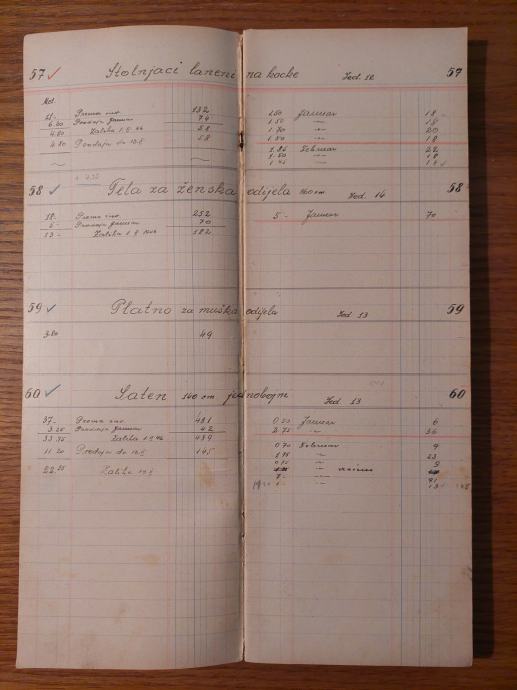 57 Stolnjaci laneni na kocke Jed. 12 57
Met.
21.- Prema inv. 132
6.20 Prodaja Januar 74
Zaliha 1.II.46 58
4.80 Prodaja do 12.II 58
1.50 Januar 18
1.50 18
1.70 20
1.50 18
1.85 Februar 22
1.50 18
1.45
58 Tela za ženska odijela 140 cm Jed. 14 58
18.- Prema inv. 252
5.- Prodaja Januar 70
13.- Zaliha 1.II 1946 182
5.- Januar 70
59 Platno za muška odijela Jed. 13 59
3.80 49
60 Saten 140 cm jednobojni Jed. 13 60
37.- Prema inv. 481
3.25 Prodaja Januar 42
33.75 Zaliha 1.II.46 439
11.20 Prodaja do 12.II 145
22.55 Zaliha 12.II
0.50 Januar 6
2.75 36
0.70 Februar 9
1.75 23
0.75 9
7.- 91
1.- 13